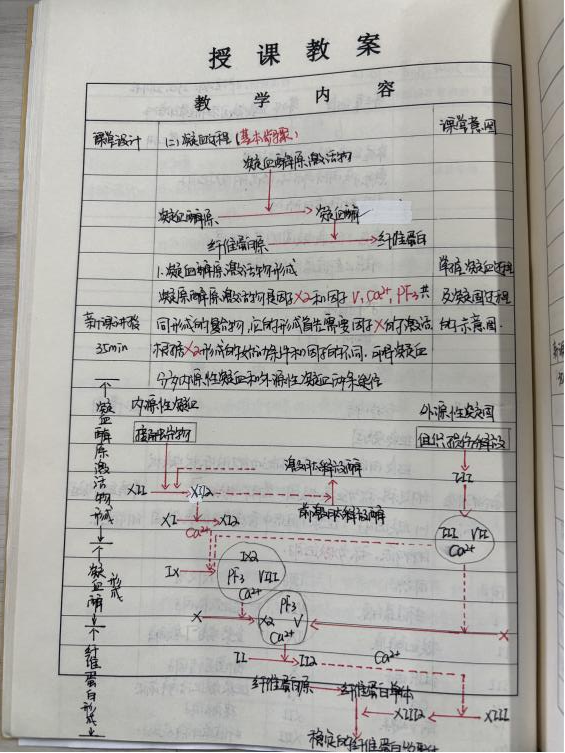 授课教案
教 学 内 容
课堂设计
(二)凝血过程(基本步骤)
课堂意图
凝血酶原激活物
凝血酶原 凝血酶
纤维蛋白原 纤维蛋白
1.凝血酶原激活物形成
掌握凝血过程
凝原酶原激活物是因子X2和因子V,Ca²⁺,PF3共
及凝固过程
新课讲授
同形成的复合物,它的形成首先需要因子X的激活
的示意图.
35min
根据X2形成的 条件和 因子的不同,可将凝血
分为内源性凝血和外源性凝血两条途径
内源性凝血
外源性凝固
凝血酶原激活物形成
接触异物
组织损伤释放
激肽释放酶
III
XII XI2
前激肽释放酶
XI XI2
Ca²⁺
III VII
Ca²⁺
凝血酶形成
IX
IX2
PF3 VIII
Ca²⁺
X
PF3
X2 V
Ca²⁺
X
II II2
Ca²⁺
纤维蛋白形成
纤维蛋白原 纤维蛋白单体
XIII2 XIII
稳定的纤维蛋白